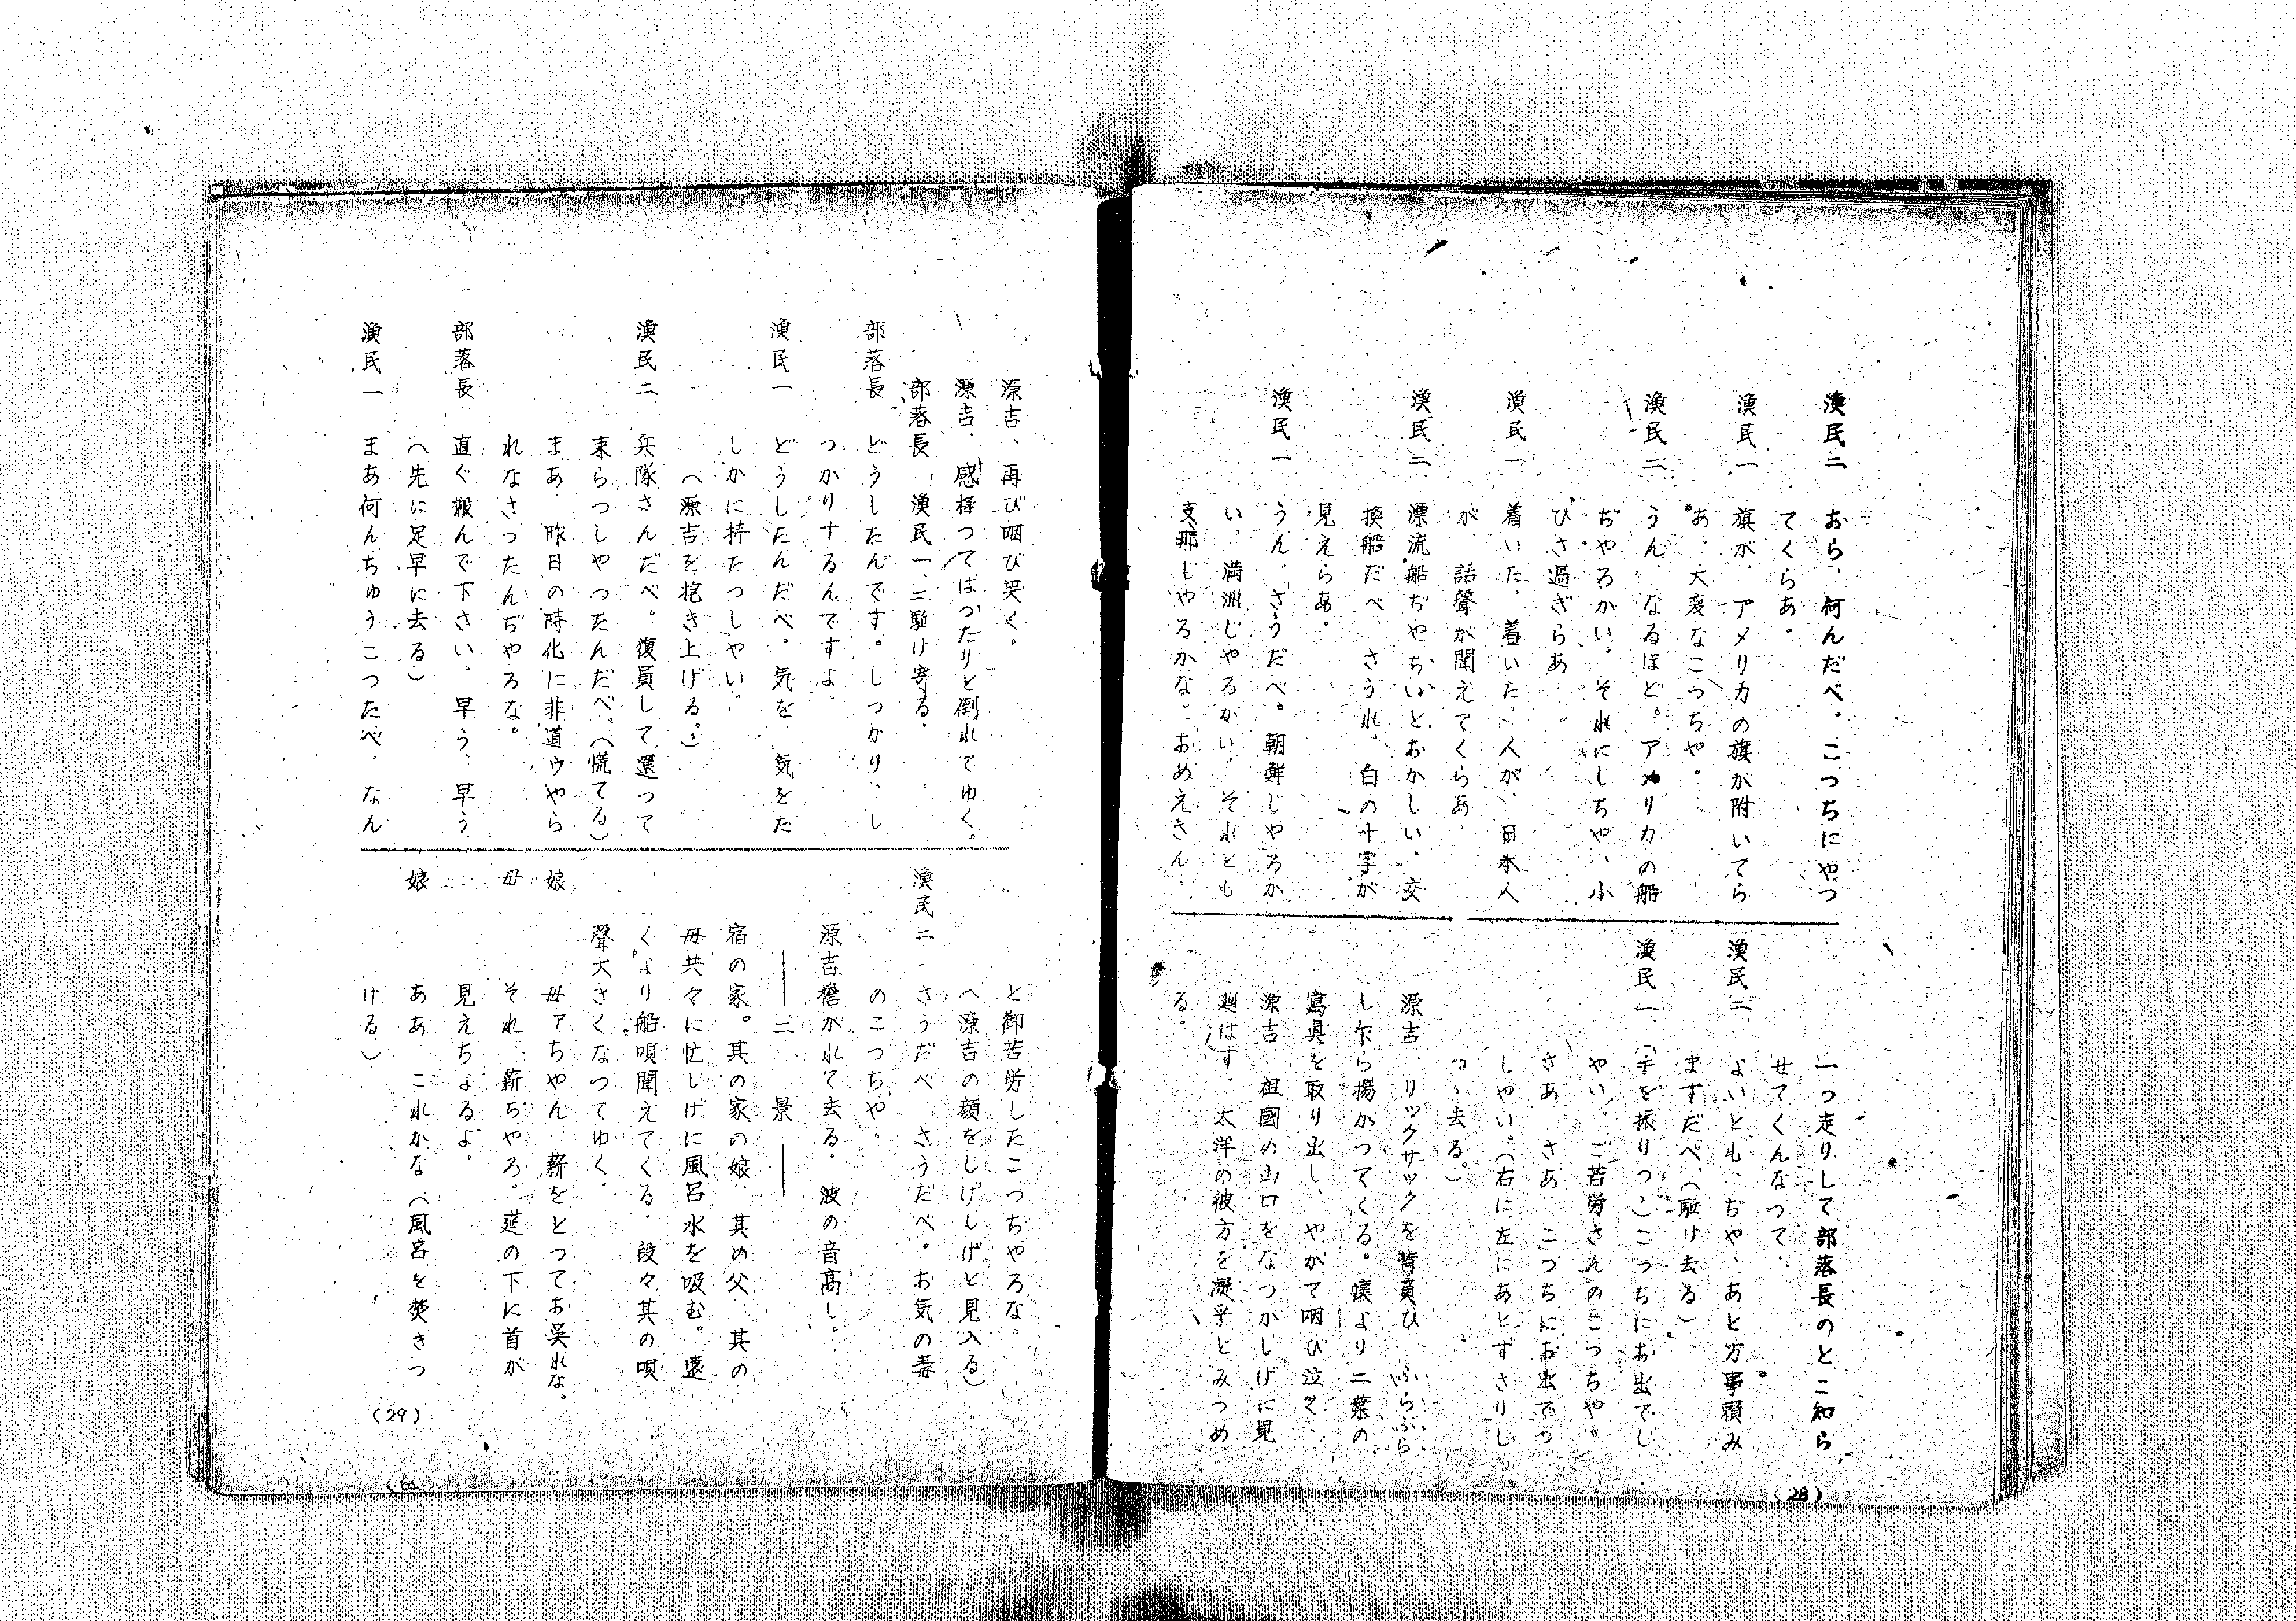 漁民二　おら、何んだべ。こつちにやつ
てくらあ。
漁民一　旗が、アメリカの旗が附いてら
あ、大変なこつちや。
漁民二　うん、なるほど。アメリカの船
ぢやろかい、それにしちや、小
ひさ過ぎらあ
漁民一　着いた、着いた、人が、日本人
が、話聲が聞えてくらあ。
漁民二　漂流船ぢやちいとおかしい。交
換船だべ、さうれ、白の十字が
見えらあ。
漁民一　うん、さうだべ。朝鮮じやろか
い、満洲じやろかい、それとも
支那じやろかな。おめえさん
一つ走りして部落長のとこ知ら
せてくんなつて、
漁民二　よいとも、ぢや、あと万事頼み
ますだべ、（駈け去る）
漁民一　（手を振りつゝ）こつちにお出でし
やい。ご苦労さんのこつちや。
さあ　さあ　こつちにお出でつ
しやい。（右に左にあとずさりし
つゝ去る。）
源吉　リックサックを背負ひ　ふらふら
し乍ら揚がつてくる。懐より二葉の
寫真を取り出し、やがて咽び泣く、
源吉、祖國の山口をなつかしげに見
廻はす、太洋の彼方を凝乎とみつめ
る。
(28)
源吉、再び咽び哭く。
源吉、感極つてばつたりと倒れてゆく。
部落長、漁民一、二駈け寄る。
部落長　どうしたんです。しつかり、し
つかりするんですよ。
漁民一　どうしたんだべ。気を、気をた
しかに持たつしやい。
（源吉を抱き上げる。）
漁民二　兵隊さんだべ。復員して還つて
来らつしやつたんだべ、（慌てる）
まあ、昨日の時化に非道ウやら
れなさつたんぢやろな。
部落長　直ぐ搬んで下さい。早う、早う
（先に足早に去る）
漁民一　まあ何んちゅうこつたべ、なん
と御苦労したこつちやろな。
（源吉の顔をしげしげと見入る）
漁民二　さうだべ、さうだべ。お気の毒
のこつちや。
源吉擔がれて去る。波の音高し。
――二　景――
宿の家。其の家の娘、其の父、其の
母共々に忙しげに風呂水を吸む。遠
くより船唄聞えてくる。段々其の唄
聲大きくなつてゆく。
娘　母アちやん、薪をとつてお呉れな。
母　それ、薪ぢやろ。莚の下に首が
見えちょるよ。
娘　ああ　これかな（風呂を焚きつ
ける）
(29)